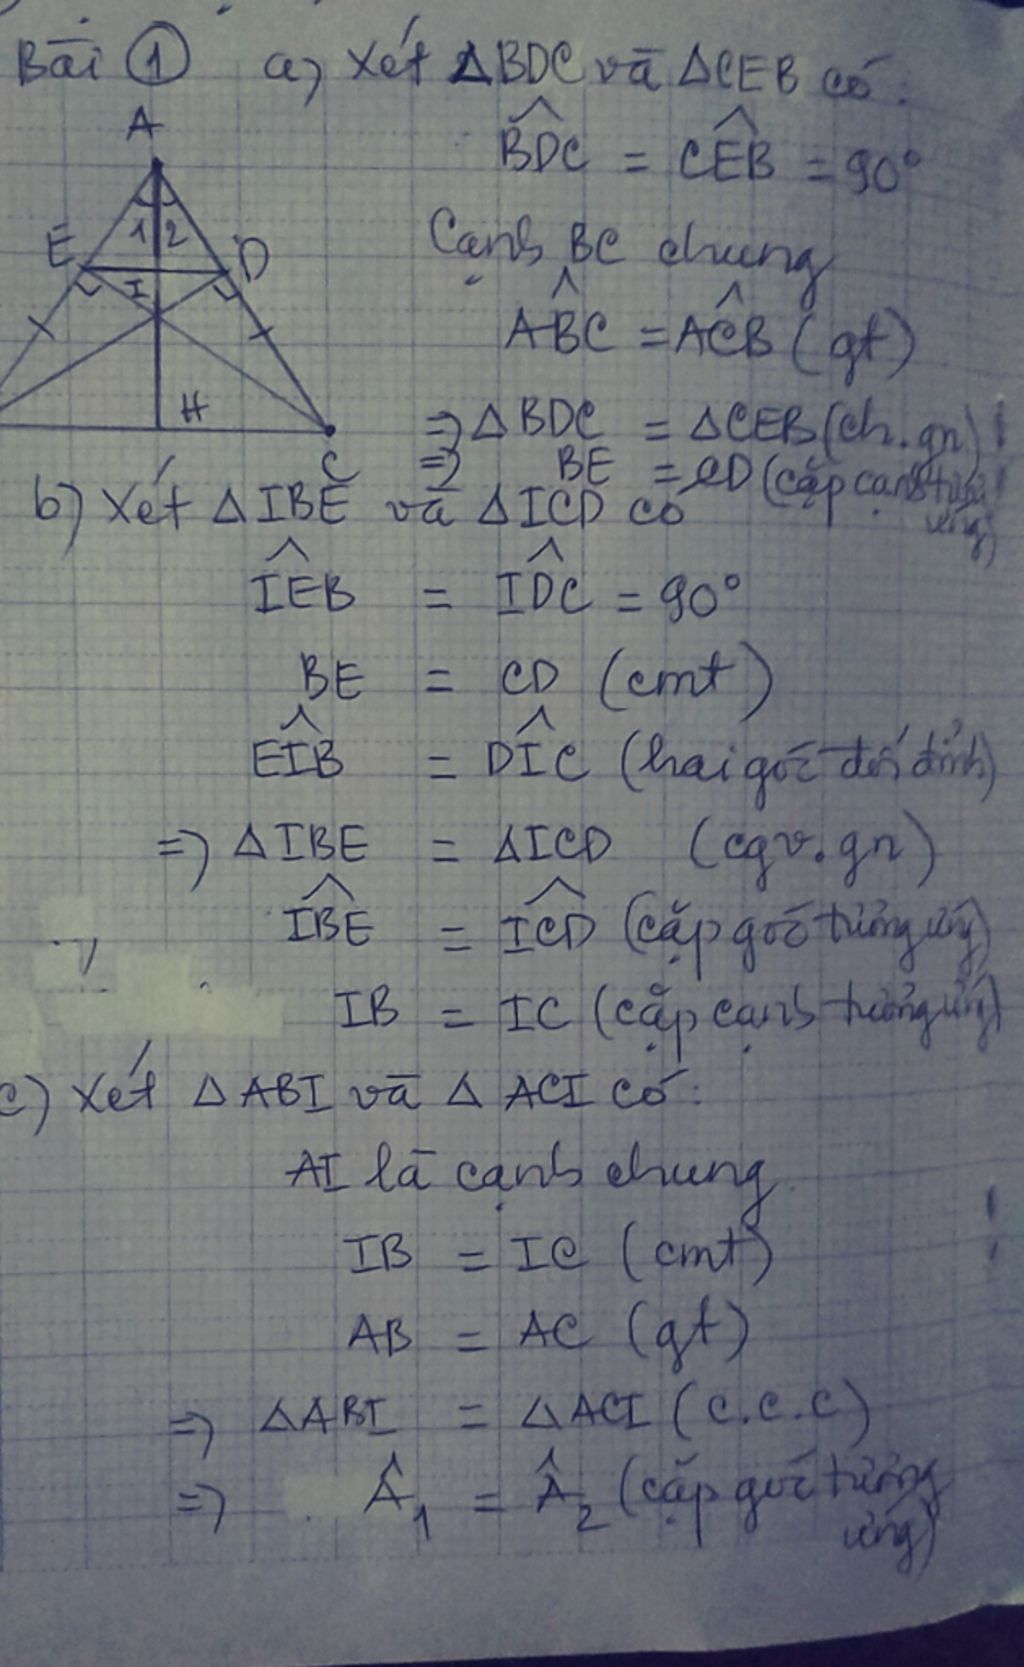 Bài ① a) Xét ΔBDC và ΔCEB có:
A
BDC^ = CEB^ = 90°
1 2
E D
I
Cạnh BC chung
ABC^ = ACB^ (gt)
H
⇒ ΔBDC = ΔCEB (ch.gn)
C
⇒ BE = CD (cặp cạnh tương
ứng)
b) Xét ΔIBE và ΔICD có
IEB^ = IDC^ = 90°
BE = CD (cmt)
EIB^ = DIC^ (hai góc đối đỉnh)
⇒ ΔIBE = ΔICD (cgv.gn)
IBE^ = ICD^ (cặp góc tương ứng)
IB = IC (cặp cạnh tương ứng)
c) Xét ΔABI và ΔACI có:
AI là cạnh chung
IB = IC (cmt)
AB = AC (gt)
⇒ ΔABI = ΔACI (c.c.c)
⇒ Â₁ = Â₂ (cặp góc tương
ứng)